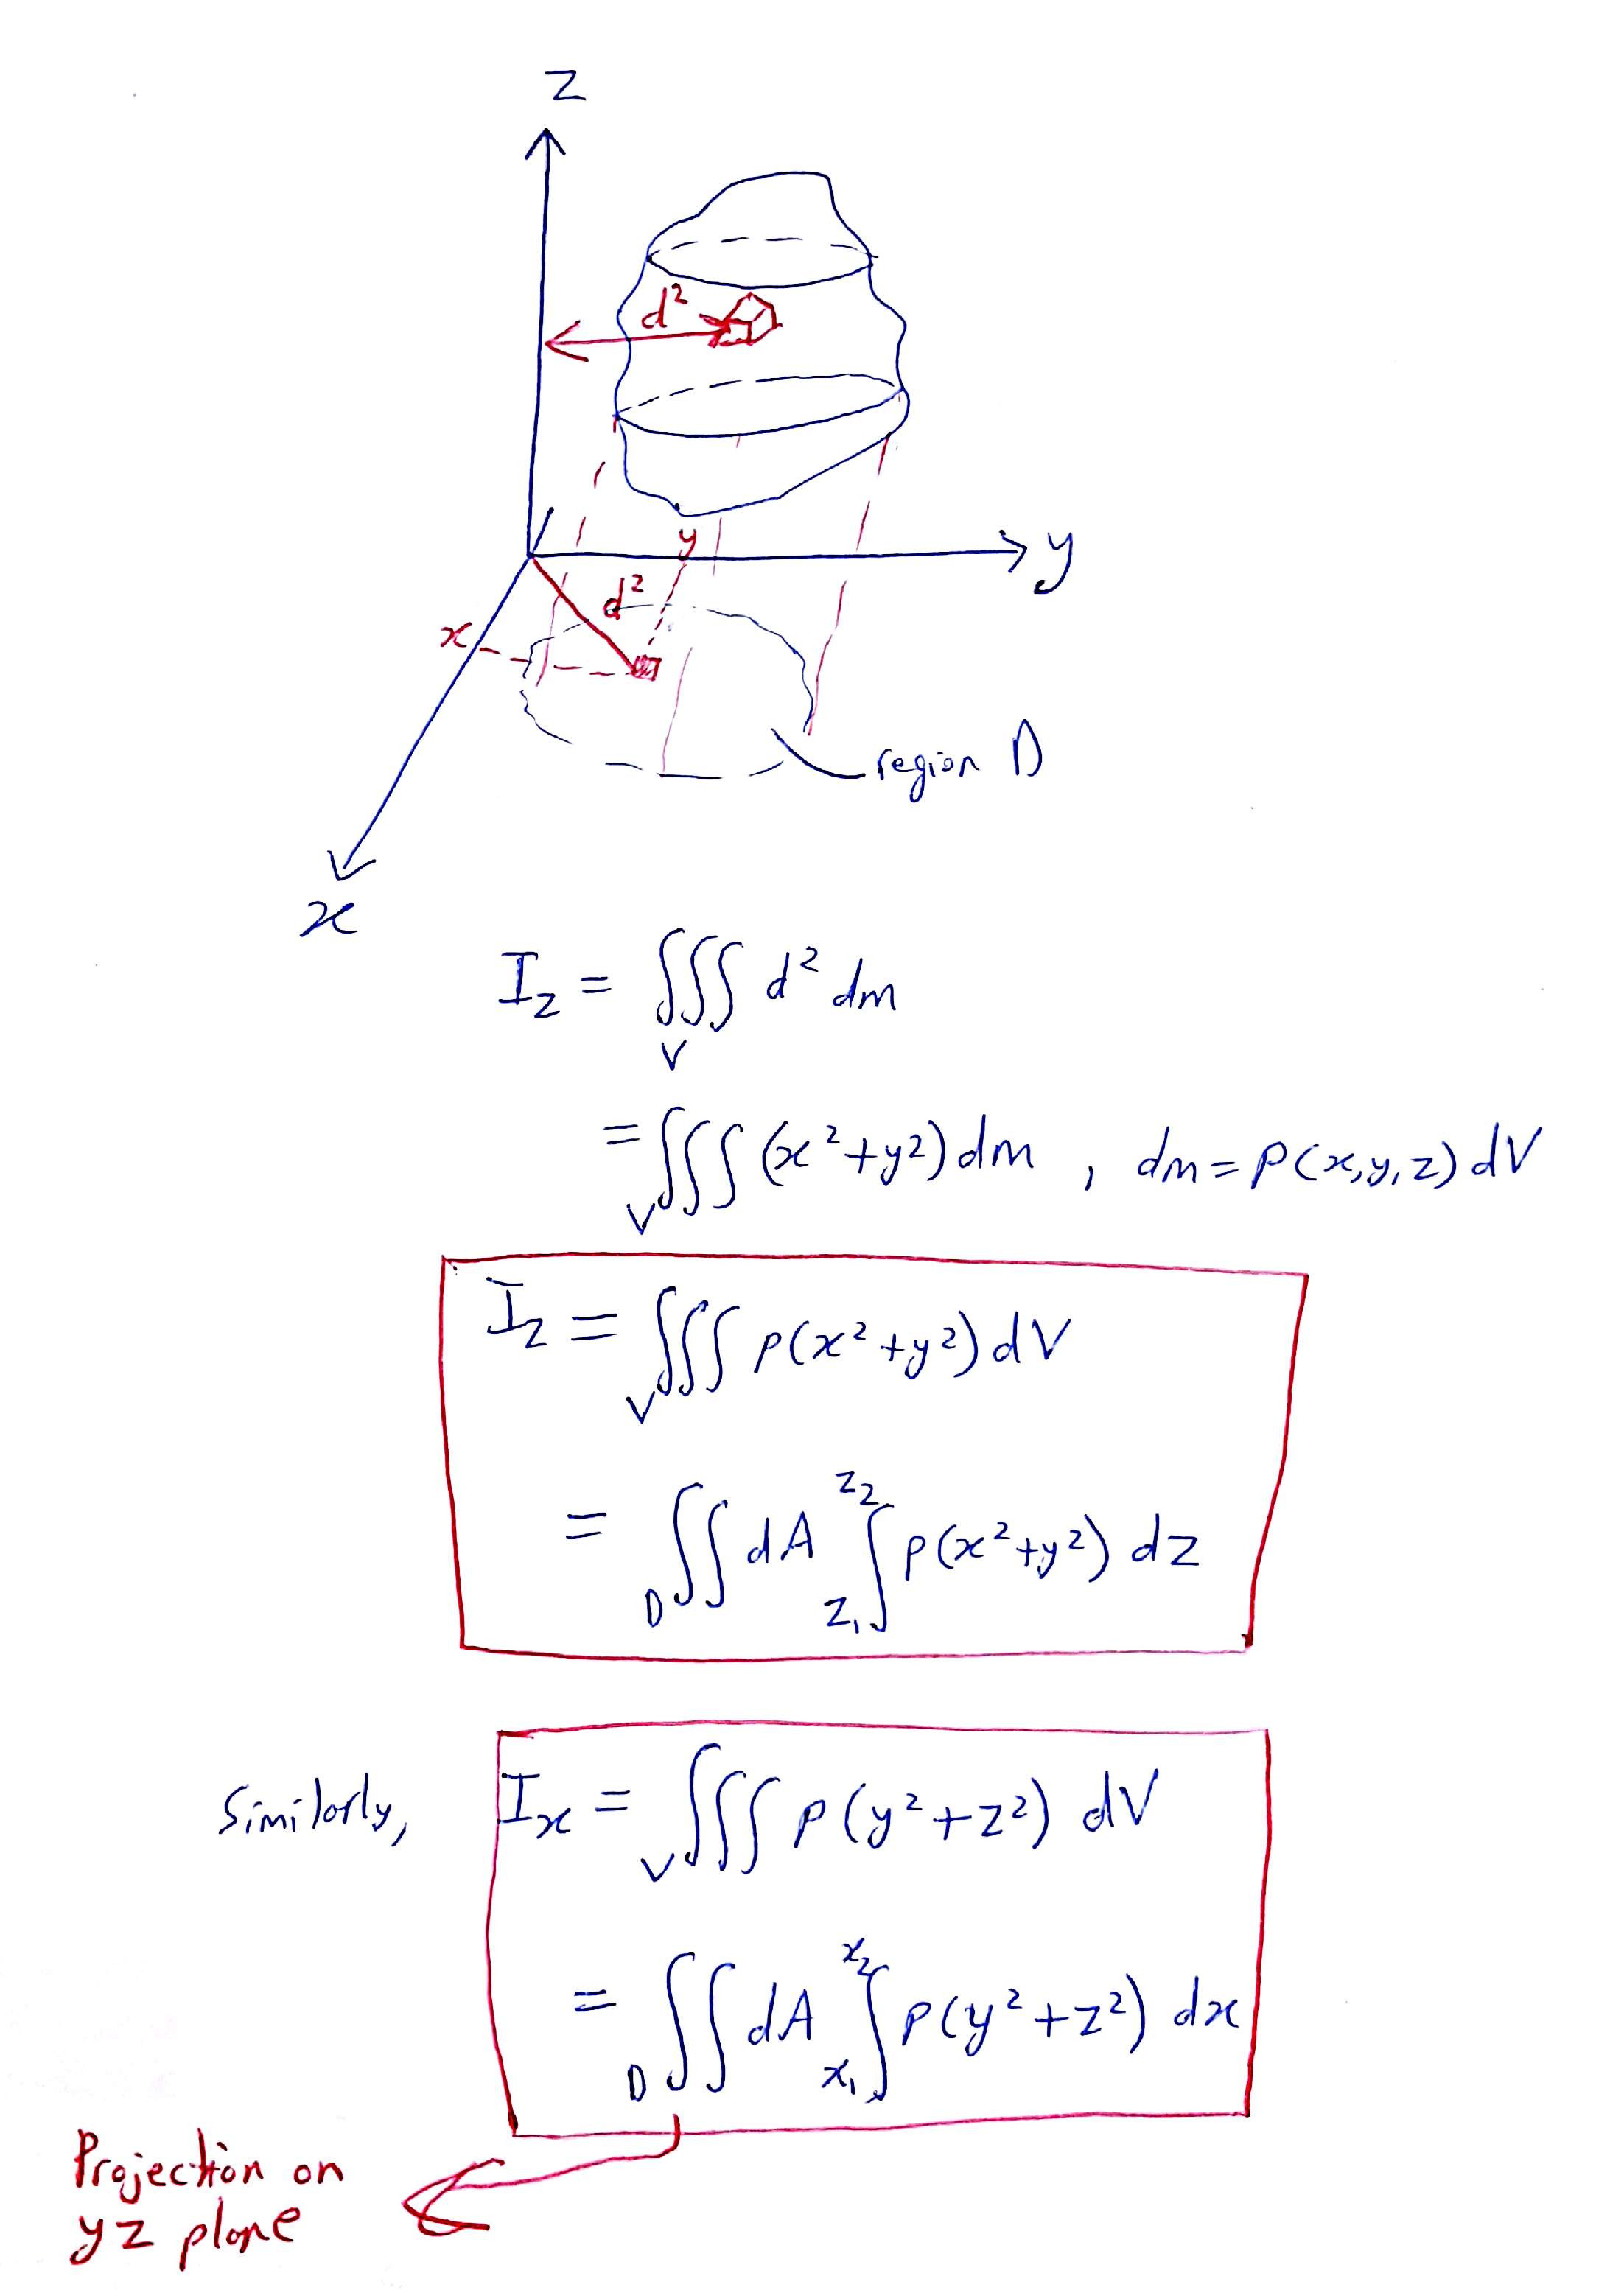 z
d²
y
y
d²
x
region D
x
I_z = ∭_V d² dm
= ∭_V (x²+y²) dm , dm = ρ(x,y,z) dV
I_z = ∭_V ρ(x²+y²) dV
= ∬_D dA ∫_{z₁}^{z₂} ρ(x²+y²) dz
Similarly, I_x = ∭_V ρ(y²+z²) dV
= ∬_D dA ∫_{x₁}^{x₂} ρ(y²+z²) dx
Projection on
yz plane